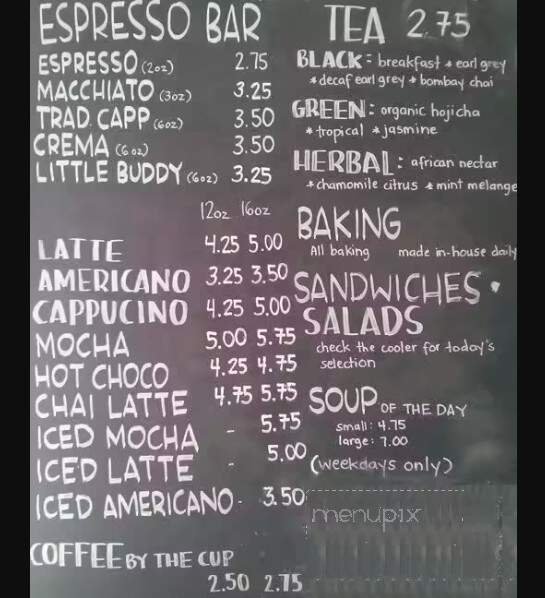 ESPRESSO BAR
ESPRESSO (2oz) 2.75
MACCHIATO (3oz) 3.25
TRAD. CAPP (6oz) 3.50
CREMA (6oz) 3.50
LITTLE BUDDY (6oz) 3.25
12oz 16oz
LATTE 4.25 5.00
AMERICANO 3.25 3.50
CAPPUCINO 4.25 5.00
MOCHA 5.00 5.75
HOT CHOCO 4.25 4.75
CHAI LATTE 4.75 5.75
ICED MOCHA - 5.75
ICED LATTE - 5.00
ICED AMERICANO - 3.50
COFFEE BY THE CUP
2.50 2.75
TEA 2.75
BLACK: breakfast * earl grey
* decaf earl grey * bombay chai
GREEN: organic hojicha
* tropical * jasmine
HERBAL: african nectar
* chamomile citrus * mint melange
BAKING
All baking made in-house daily
SANDWICHES •
SALADS
check the cooler for today's
selection
SOUP OF THE DAY
small: 4.75
large: 7.00
(weekdays only)
menupix